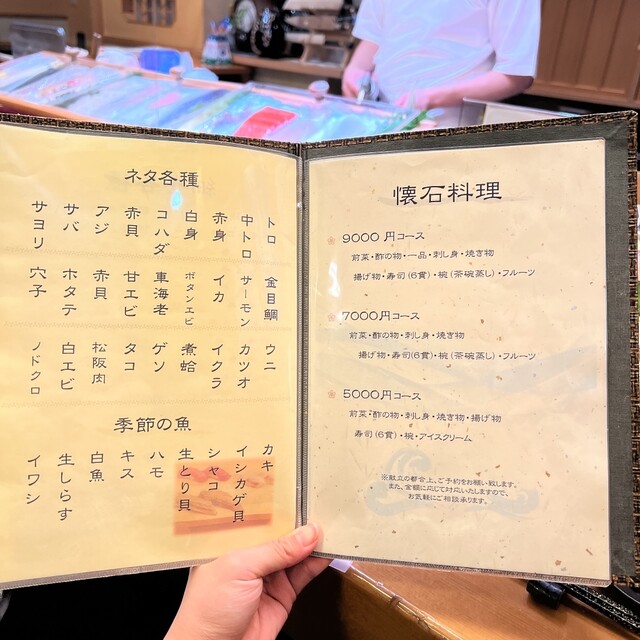 ネタ各種
トロ
中トロ
赤身
白身
コハダ
赤貝
アジ
サバ
サヨリ
金目鯛
サーモン
イカ
ボタンエビ
車海老
甘エビ
赤貝
ホタテ
穴子
ウニ
カツオ
イクラ
煮蛤
ゲソ
タコ
松阪肉
白エビ
ノドクロ
季節の魚
カキ
イシカゲ貝
シャコ
生とり貝
ハモ
キス
白魚
生しらす
イワシ
懐石料理
9000円コース
前菜・酢の物・一品・刺し身・焼き物
揚げ物・寿司(6貫)・椀(茶碗蒸し)・フルーツ
7000円コース
前菜・酢の物・刺し身・焼き物
揚げ物・寿司(6貫)・椀(茶碗蒸し)・フルーツ
5000円コース
前菜・酢の物・刺し身・焼き物・揚げ物
寿司(6貫)・椀・アイスクリーム
※献立の都合上、ご予約をお願い致します。
また、金額に応じて対応いたしますので、
お気軽にご相談承ります。